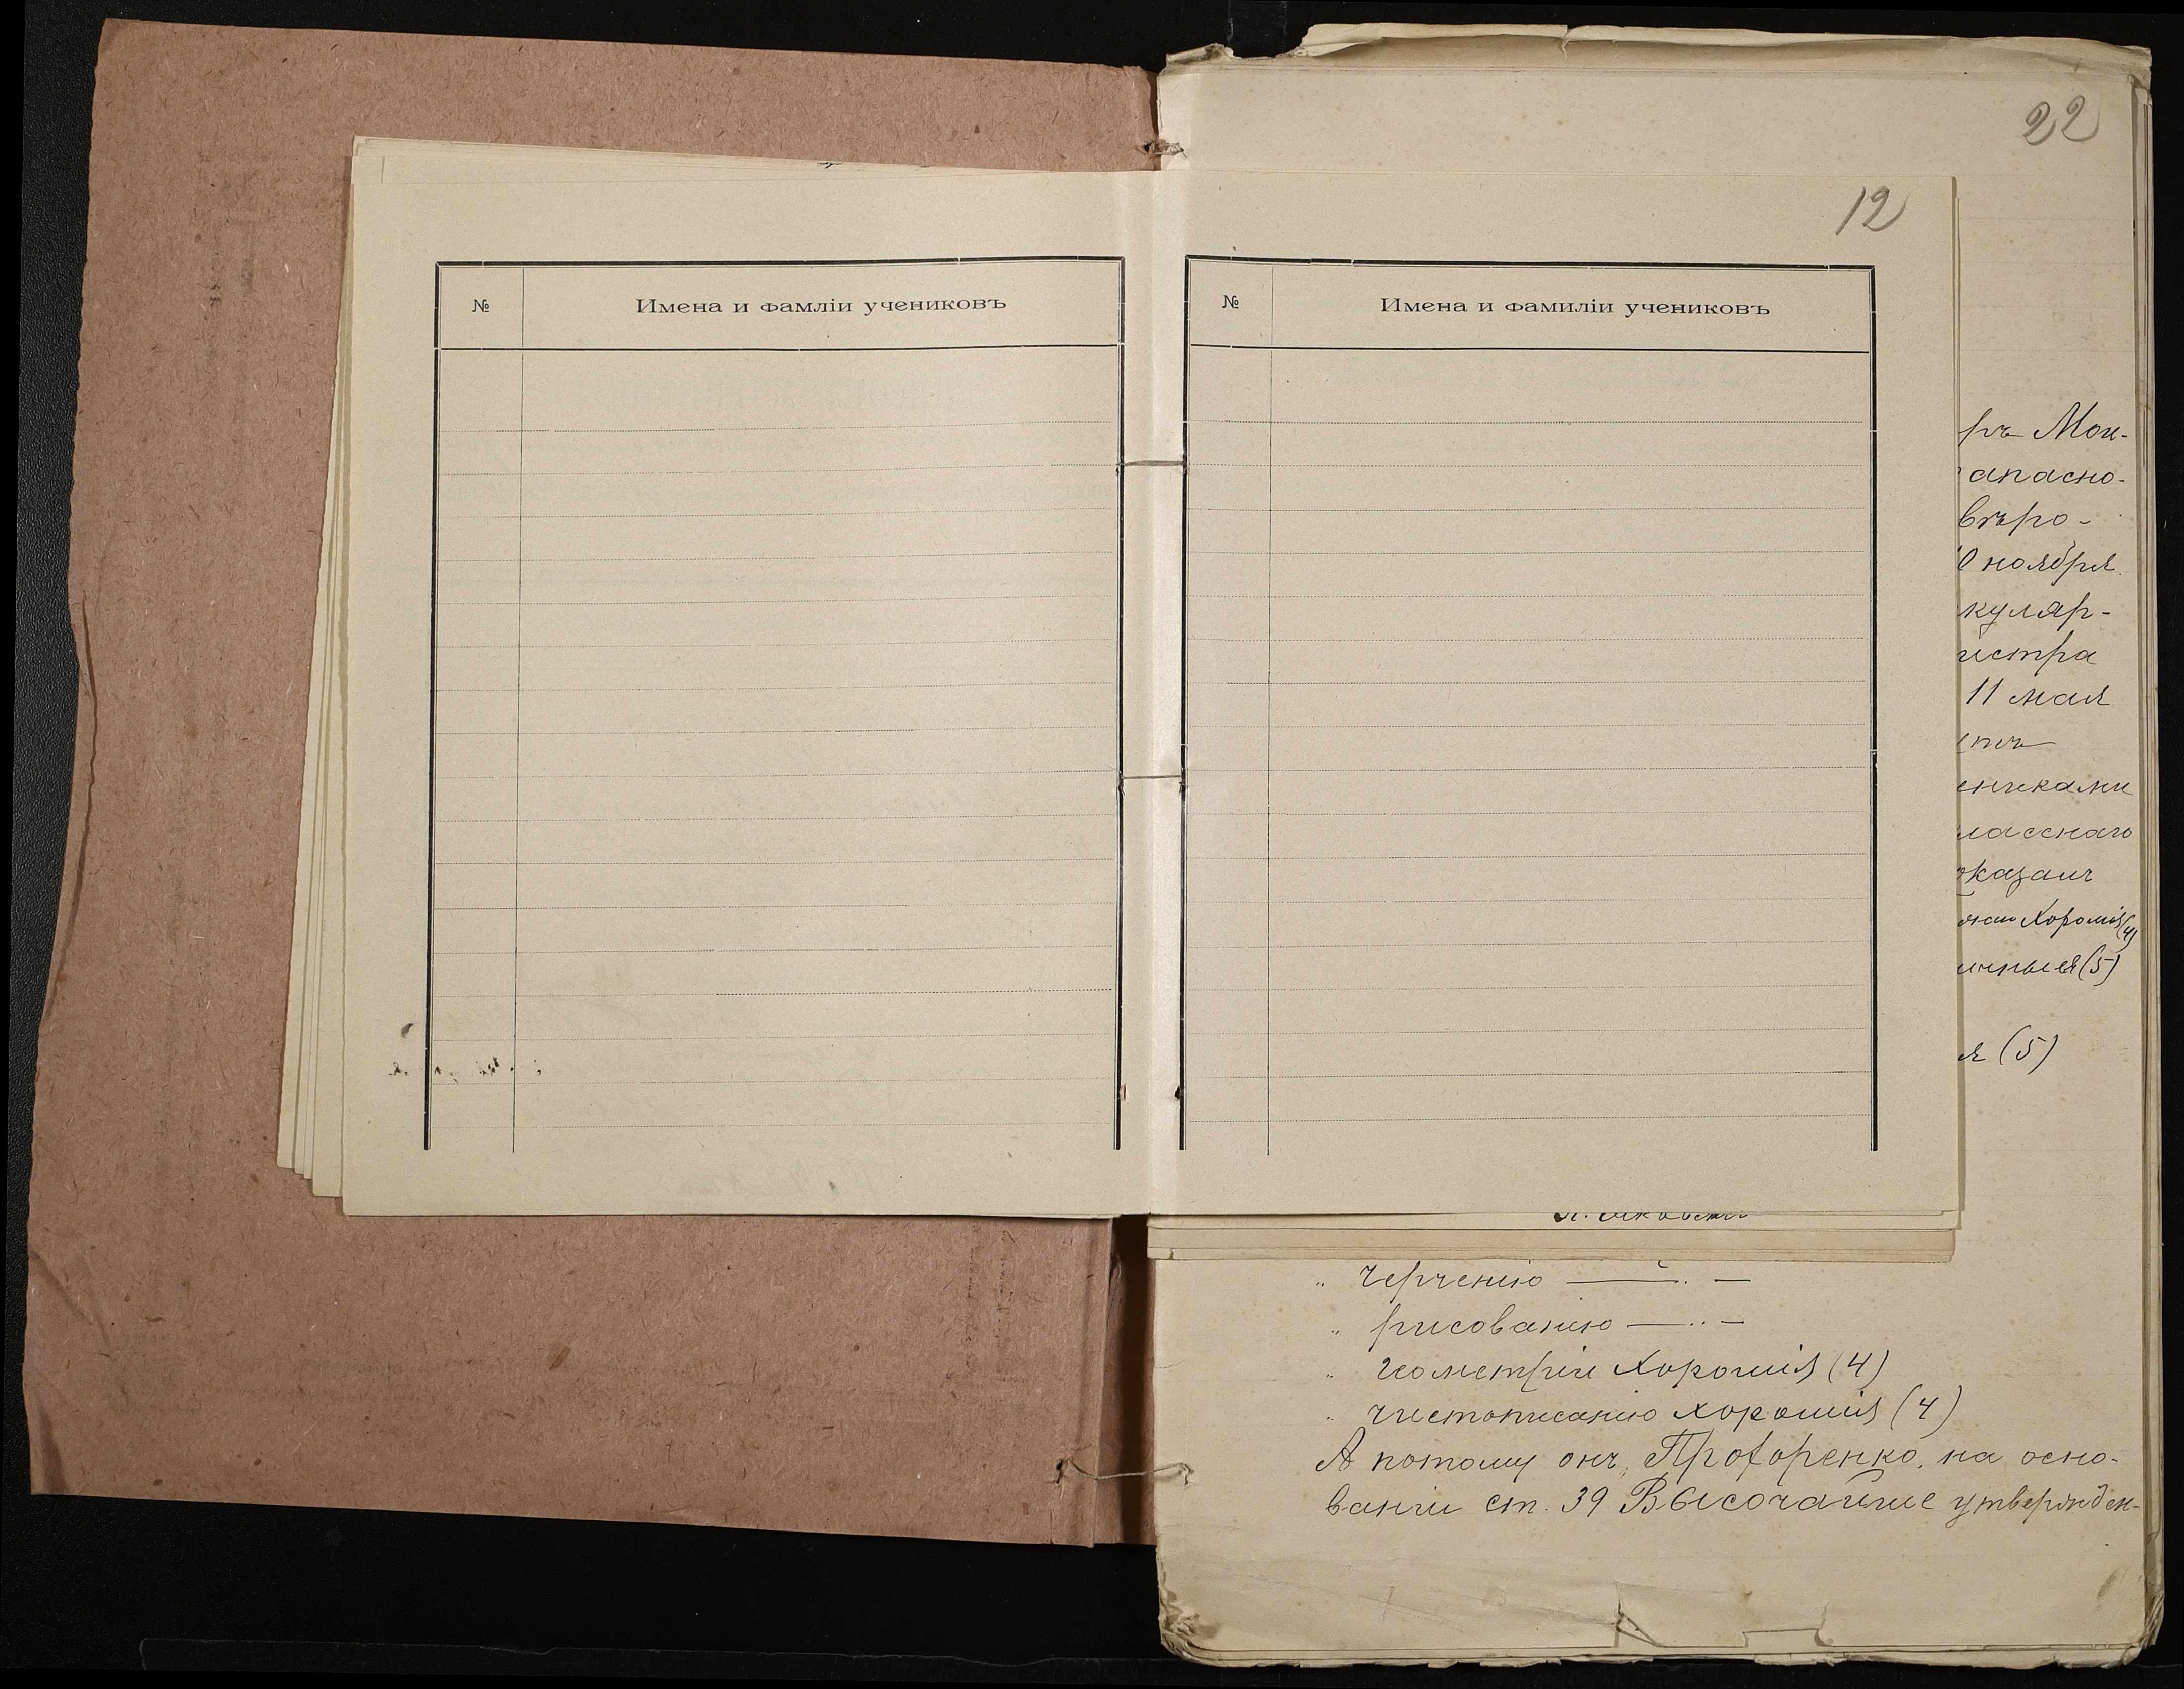 22
12
№ Имена и фамліи учениковъ
№ Имена и фамиліи учениковъ
ръ Мои-
апасно-
вѣро-
0 ноября
куляр-
истра
11 мая
ениками
лласснаго
оказалъ
Хорошія (4)
ичныея (5)
я (5)
„ черченію — „ —
„ рисованію — „ —
„ геометріи Хорошія (4)
„ чистописанію Хорошія (4)
А потому онъ, Профоренко, на осно-
ваніи ст. 39 Высочайше утвержден-